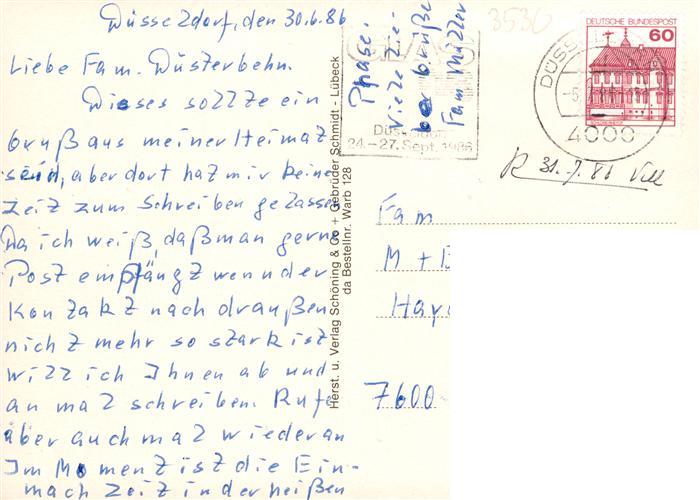 Düsseldorf, den 30.6.86
Liebe Fam. Düsterbehn.
Dieses sollte ein
Gruß aus meiner Heimat
sein, aber dort hat mir keine
Zeit zum Schreiben gelasse
Da ich weiß, daß man gerne
Post empfängt wenn der
Kontakt nach draußen
nicht mehr so stark ist
will ich Ihnen ab und
an mal schreiben. Rufe
aber auch mal wieder an
Im Moment ist die Ein-
mach Zeit in der heißen
Phase.
viele lie-
be Grüße
Fam Müller
Herst. u. Verlag Schöning & Co + Gebrüder Schmidt - Lübeck
da Bestellnr. Warb 128
3530
24.-27. Sept. 1986
DEUTSCHE BUNDESPOST
60
DÜSS
4000
R 31.7.86
Fam
M + B
Hay
7600